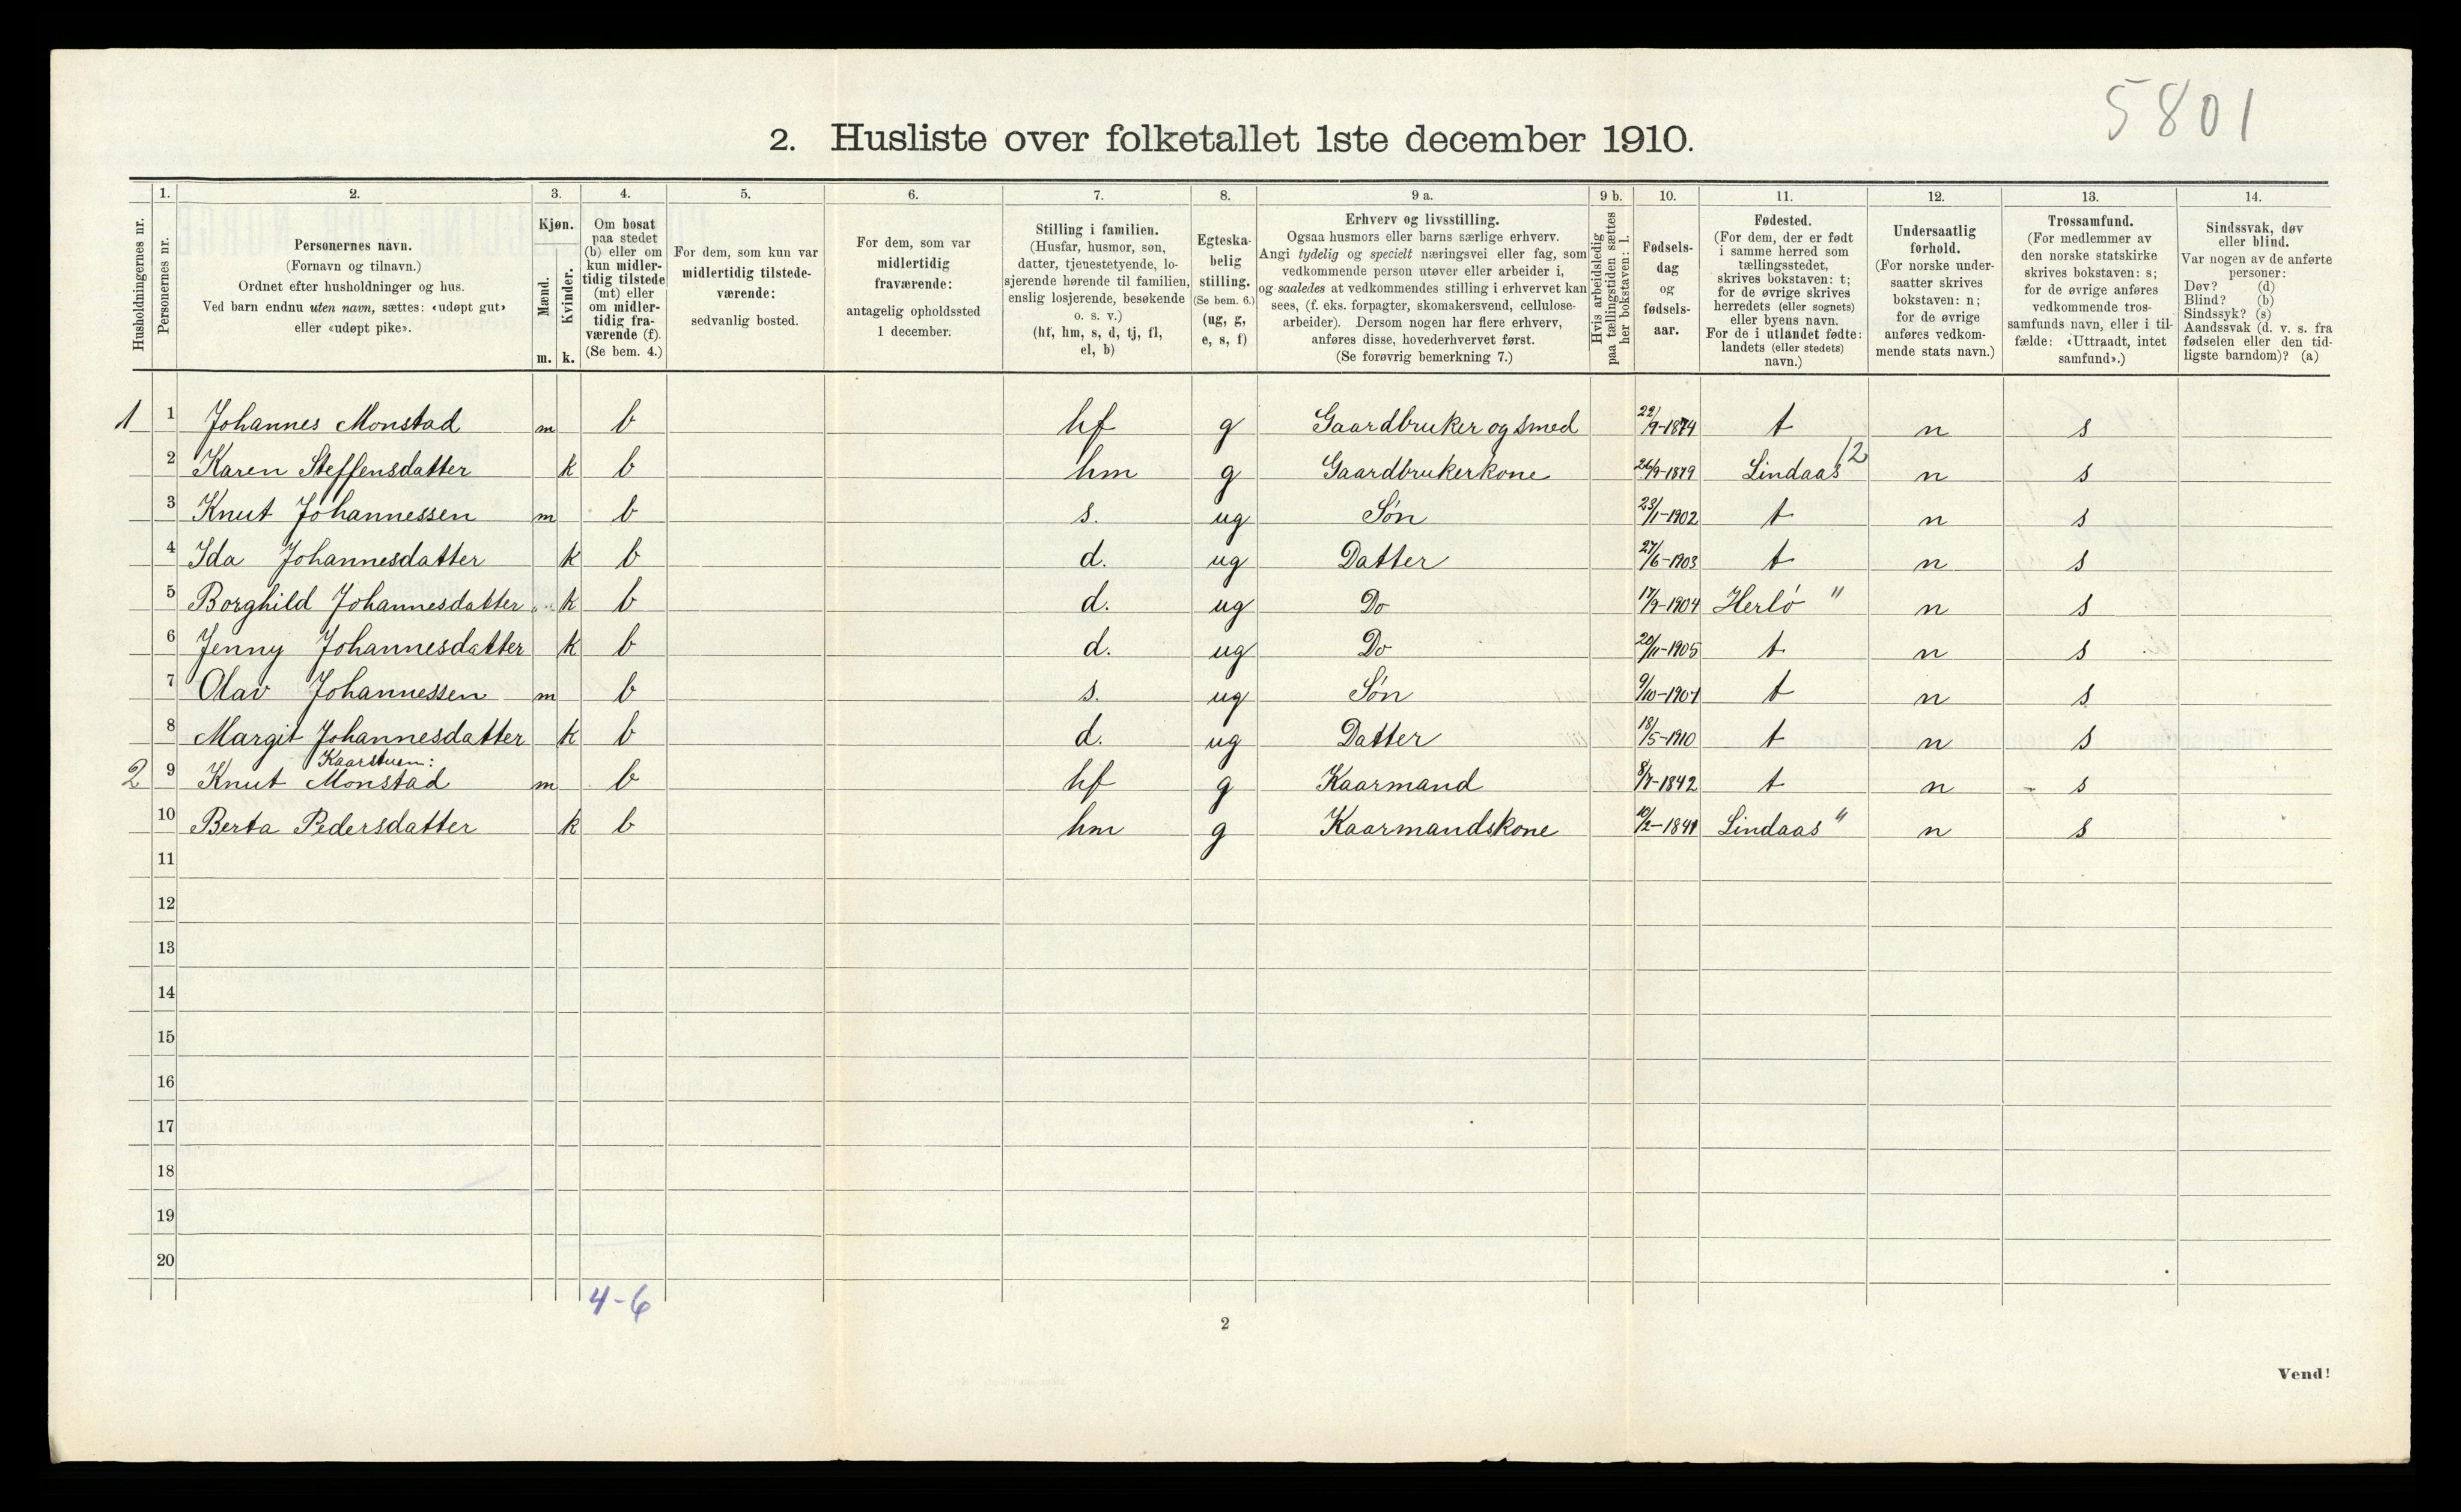 5801
2. Husliste over folketallet 1ste december 1910.
Husholdningernes nr.
1.
Personernes nr.
2.
Personernes navn.
(Fornavn og tilnavn.)
Ordnet efter husholdninger og hus.
Ved barn endnu uten navn, sættes: «udøpt gut»
eller «udøpt pike».
3.
Kjøn.
Mænd.
Kvinder.
m. k.
4.
Om bosat
paa stedet
(b) eller om
kun midler-
tidig tilstede
(mt) eller
om midler-
tidig fra-
værende (f).
(Se bem. 4.)
5.
For dem, som kun var
midlertidig tilstede-
værende:
sedvanlig bosted.
6.
For dem, som var
midlertidig
fraværende:
antagelig opholdssted
1 december.
7.
Stilling i familien.
(Husfar, husmor, søn,
datter, tjenestetyende, lo-
sjerende hørende til familien,
enslig losjerende, besøkende
o. s. v.)
(hf, hm, s, d, tj, fl,
el, b)
8.
Egteska-
belig
stilling.
(Se bem. 6.)
(ug, g,
e, s, f)
9 a.
Erhverv og livsstilling.
Ogsaa husmors eller barns særlige erhverv.
Angi tydelig og specielt næringsvei eller fag, som
vedkommende person utøver eller arbeider i,
og saaledes at vedkommendes stilling i erhvervet kan
sees, (f. eks. forpagter, skomakersvend, cellulose-
arbeider). Dersom nogen har flere erhverv,
anføres disse, hovederhvervet først.
(Se forøvrig bemerkning 7.)
9 b.
Hvis arbeidsledig
paa tællingstiden sættes
her bokstaven: l.
10.
Fødsels-
dag
og
fødsels-
aar.
11.
Fødested.
(For dem, der er født
i samme herred som
tællingsstedet,
skrives bokstaven: t;
for de øvrige skrives
herredets (eller sognets)
eller byens navn.
For de i utlandet fødte:
landets (eller stedets)
navn.)
12.
Undersaatlig
forhold.
(For norske under-
saatter skrives
bokstaven: n;
for de øvrige
anføres vedkom-
mende stats navn.)
13.
Trossamfund.
(For medlemmer av
den norske statskirke
skrives bokstaven: s;
for de øvrige anføres
vedkommende tros-
samfunds navn, eller i til-
fælde: «Uttraadt, intet
samfund».)
14.
Sindssvak, døv
eller blind.
Var nogen av de anførte
personer:
Døv? (d)
Blind? (b)
Sindssyk? (s)
Aandssvak (d. v. s. fra
fødselen eller den tid-
ligste barndom)? (a)
1 1 Johannes Monstad m b hf g Gaardbruker og smed 22/9-1874 t n s
2 Karen Steffensdatter k b hm g Gaardbrukerkone 26/9-1879 Lindaas 12 n s
3 Knut Johannessen m b s. ug Søn 23/1-1902 t n s
4 Ida Johannesdatter k b d. ug Datter 27/6-1903 t n s
5 Borghild Johannesdatter k b d. ug Do 17/9-1904 Herlö " n s
6 Jenny Johannesdatter k b d. ug Do 20/11-1905 t n s
7 Olav Johannessen m b s. ug Søn 9/10-1907 t n s
8 Margit Johannesdatter k b d. ug Datter 18/5-1910 t n s
Kaarstuen:
2 9 Knut Monstad m b hf g Kaarmand 8/7-1842 t n s
10 Berta Pedersdatter k b hm g Kaarmandskone 10/2-1841 Lindaas " n s
11
12
13
14
15
16
17
18
19
20
4-6
2
Vend!